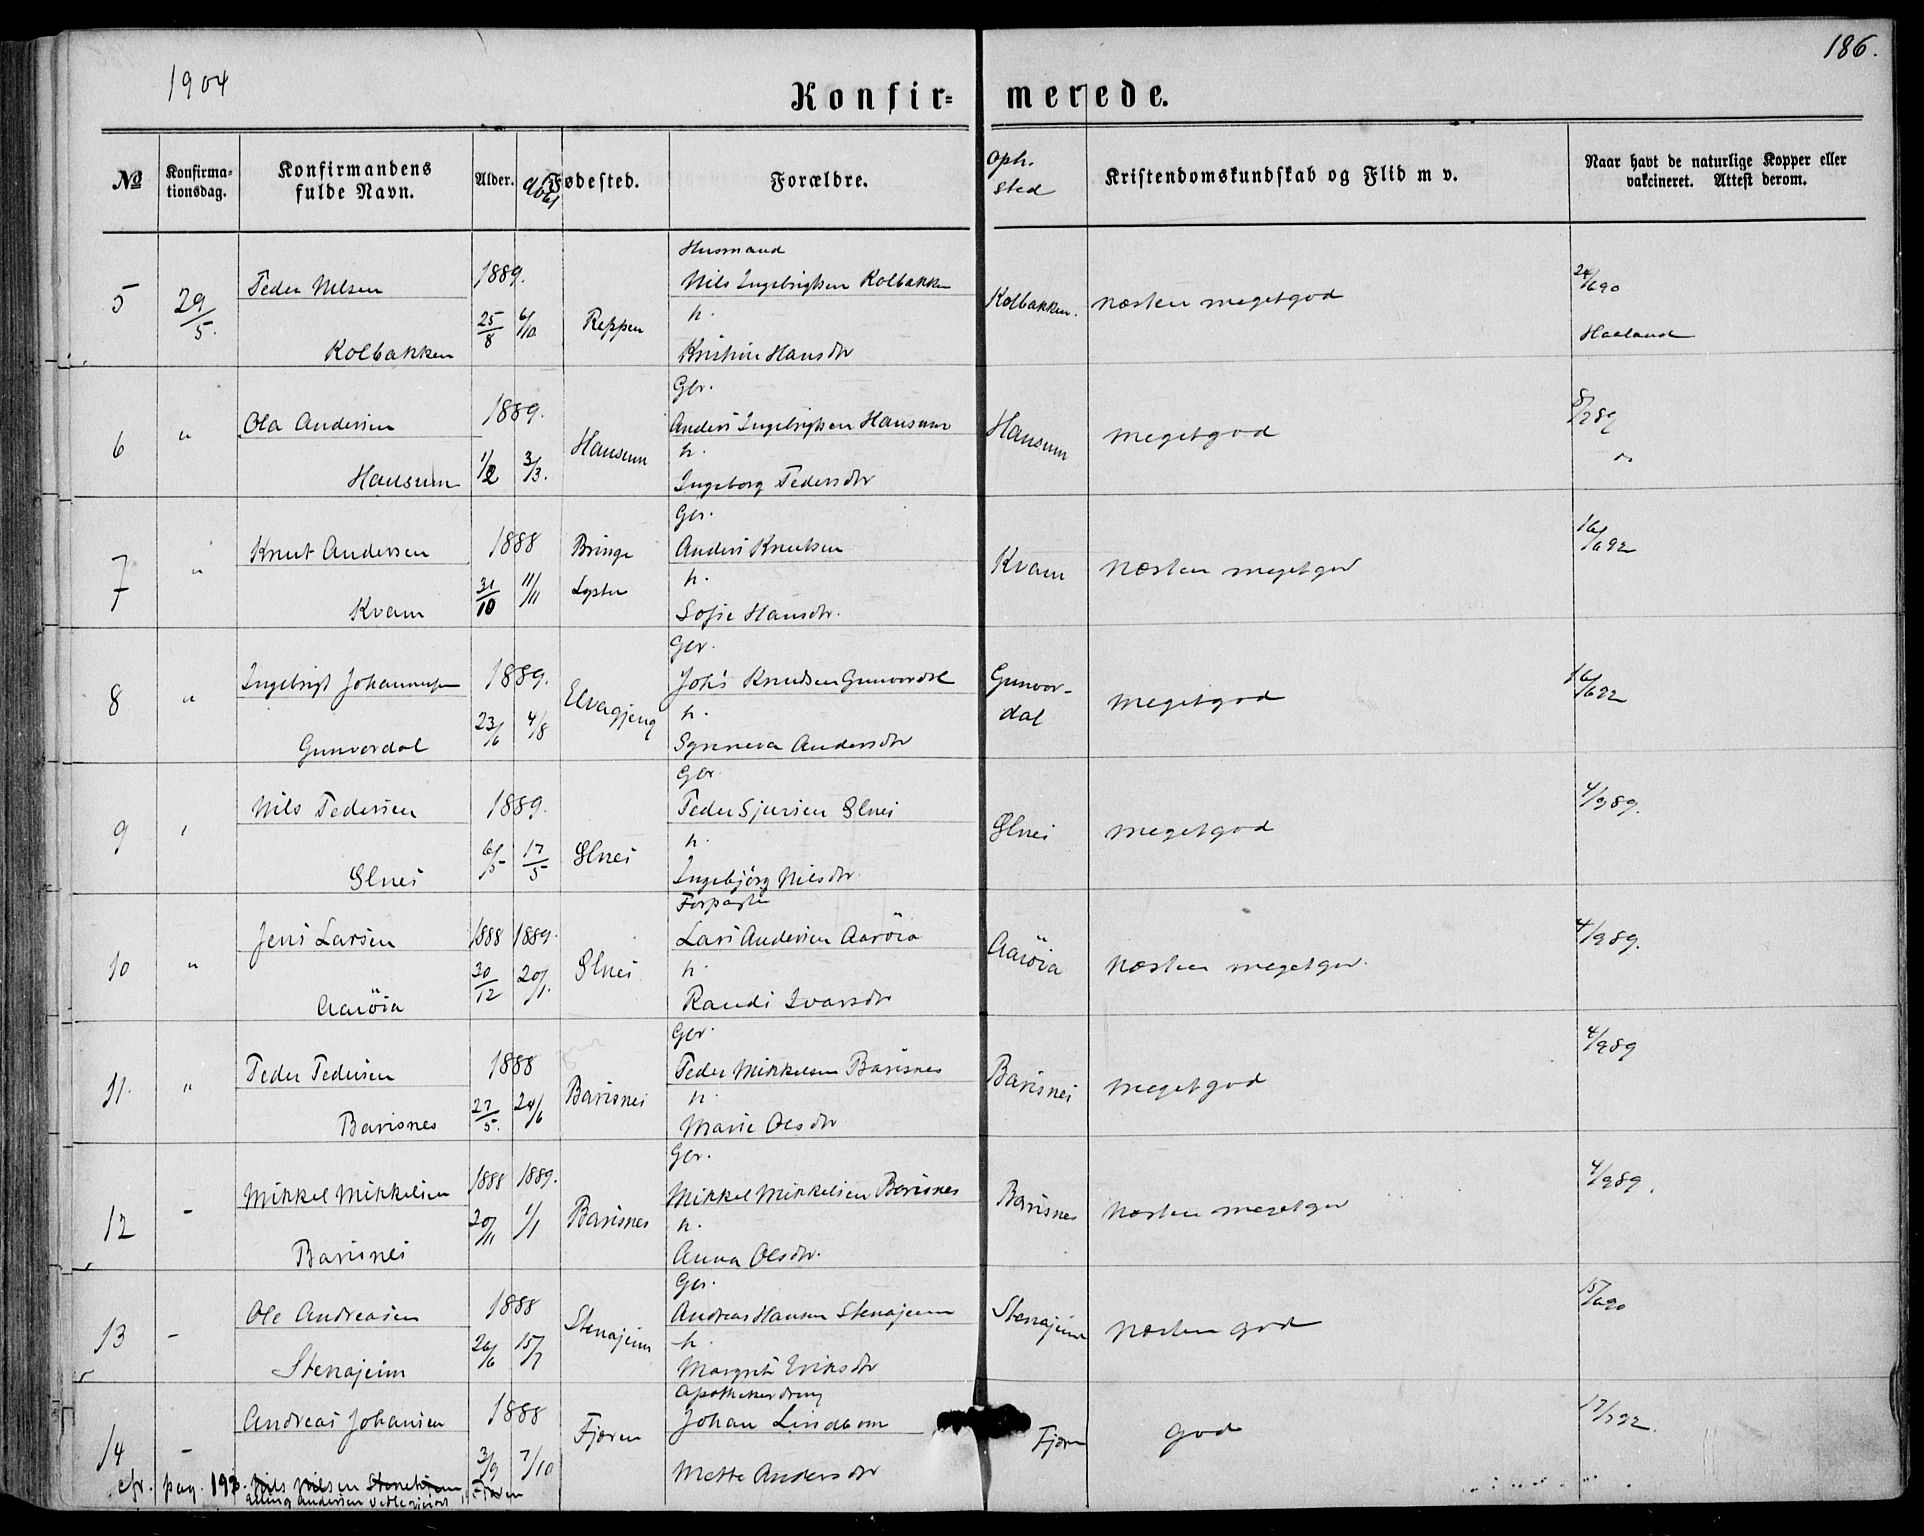 1904
186.
Konfir= merede.
№
Konfirma-tionsdag.
Konfirmandens fulde Navn.
Alder.
døbt
Fødested.
Forældre.
Oph. sted
Kristendomskundskab og Flid m v.
Naar havt de naturlige Kopper eller vakcineret. Attest derom.
5 29/5. Peder Nilsen Kolbakken 1889. 25/8 6/10. Reppen
Husmand
Nils Ingebrigtsen Kolbakken
h.
Kristine Hansdtr
Kolbakken. næsten megetgod 24/6 90 Haaland
6 " Ola Andersen Hausum 1889. 1/2 3/3. Hausum
Gbr.
Anders Ingebrigtsen Hausum
h.
Ingeborg Pedersdtr
Hausum megetgod 8/7 89 "
7 " Knut Andersen Kvam 1888 31/10 11/11 Bringe Lyster
Gbr.
Anders Knutsen
h.
Sofie Hansdtr.
Kvam næsten megetgod 16/6 92
8 " Ingebrigt Johannesen Gunvordal 1889. 23/6 4/8 Elvagjeng
Gbr.
Johs Knudsen Gunvordal
h.
Synneva Andersdtr
Gunvor-dal megetgod 16/6 92
9 Nils Pedersen Slnes 1889. 6/5 17/5 Slnes
Gbr.
Peder Sjursen Slnes
h.
Ingebjörg Nilsdtr.
Slnes megetgod 4/9 89.
10 " Jens Larsen Aaröia 1888 1889. 30/12 20/1. Slnes
Forpagter
Lars Andersen Aaröia
h.
Randi Ivarsdtr
Aaröia næsten megetgod. 4/9 89.
11. " Peder Pedersen Barsnes 1888 27/5. 24/6 Barsnes
Gbr.
Peder Mikkelsen Barsnes
h.
Marie Olsdtr
Barsnes megetgod 4/9 89
12 - Mikkel Mikkelsen Barsnes 1888 1889. 20/11 1/1 Barsnes
Gbr.
Mikkel Mikkelsen Barsnes
h.
Anna Olsdtr.
Barsnes næsten megetgod 4/9 89.
13 - Ole Andreasen Stenajeim 1888 26/6 15/7 Stenajeim
Gbr.
Andreas Hansen Stenajeim
h.
Margrete Eriksdtr
Stenajeim næsten god 15/6 90
14 - Andreas Johansen 1888 3/9 7/10 Fjæren
Apothekerdreng
Johan Lindbom
Mette Andersdtr
Fjæren god 17/7 92.
cfr. pag. 193. Nils Nilsen Stenehjem
Elling Andersen Vetlegjeret